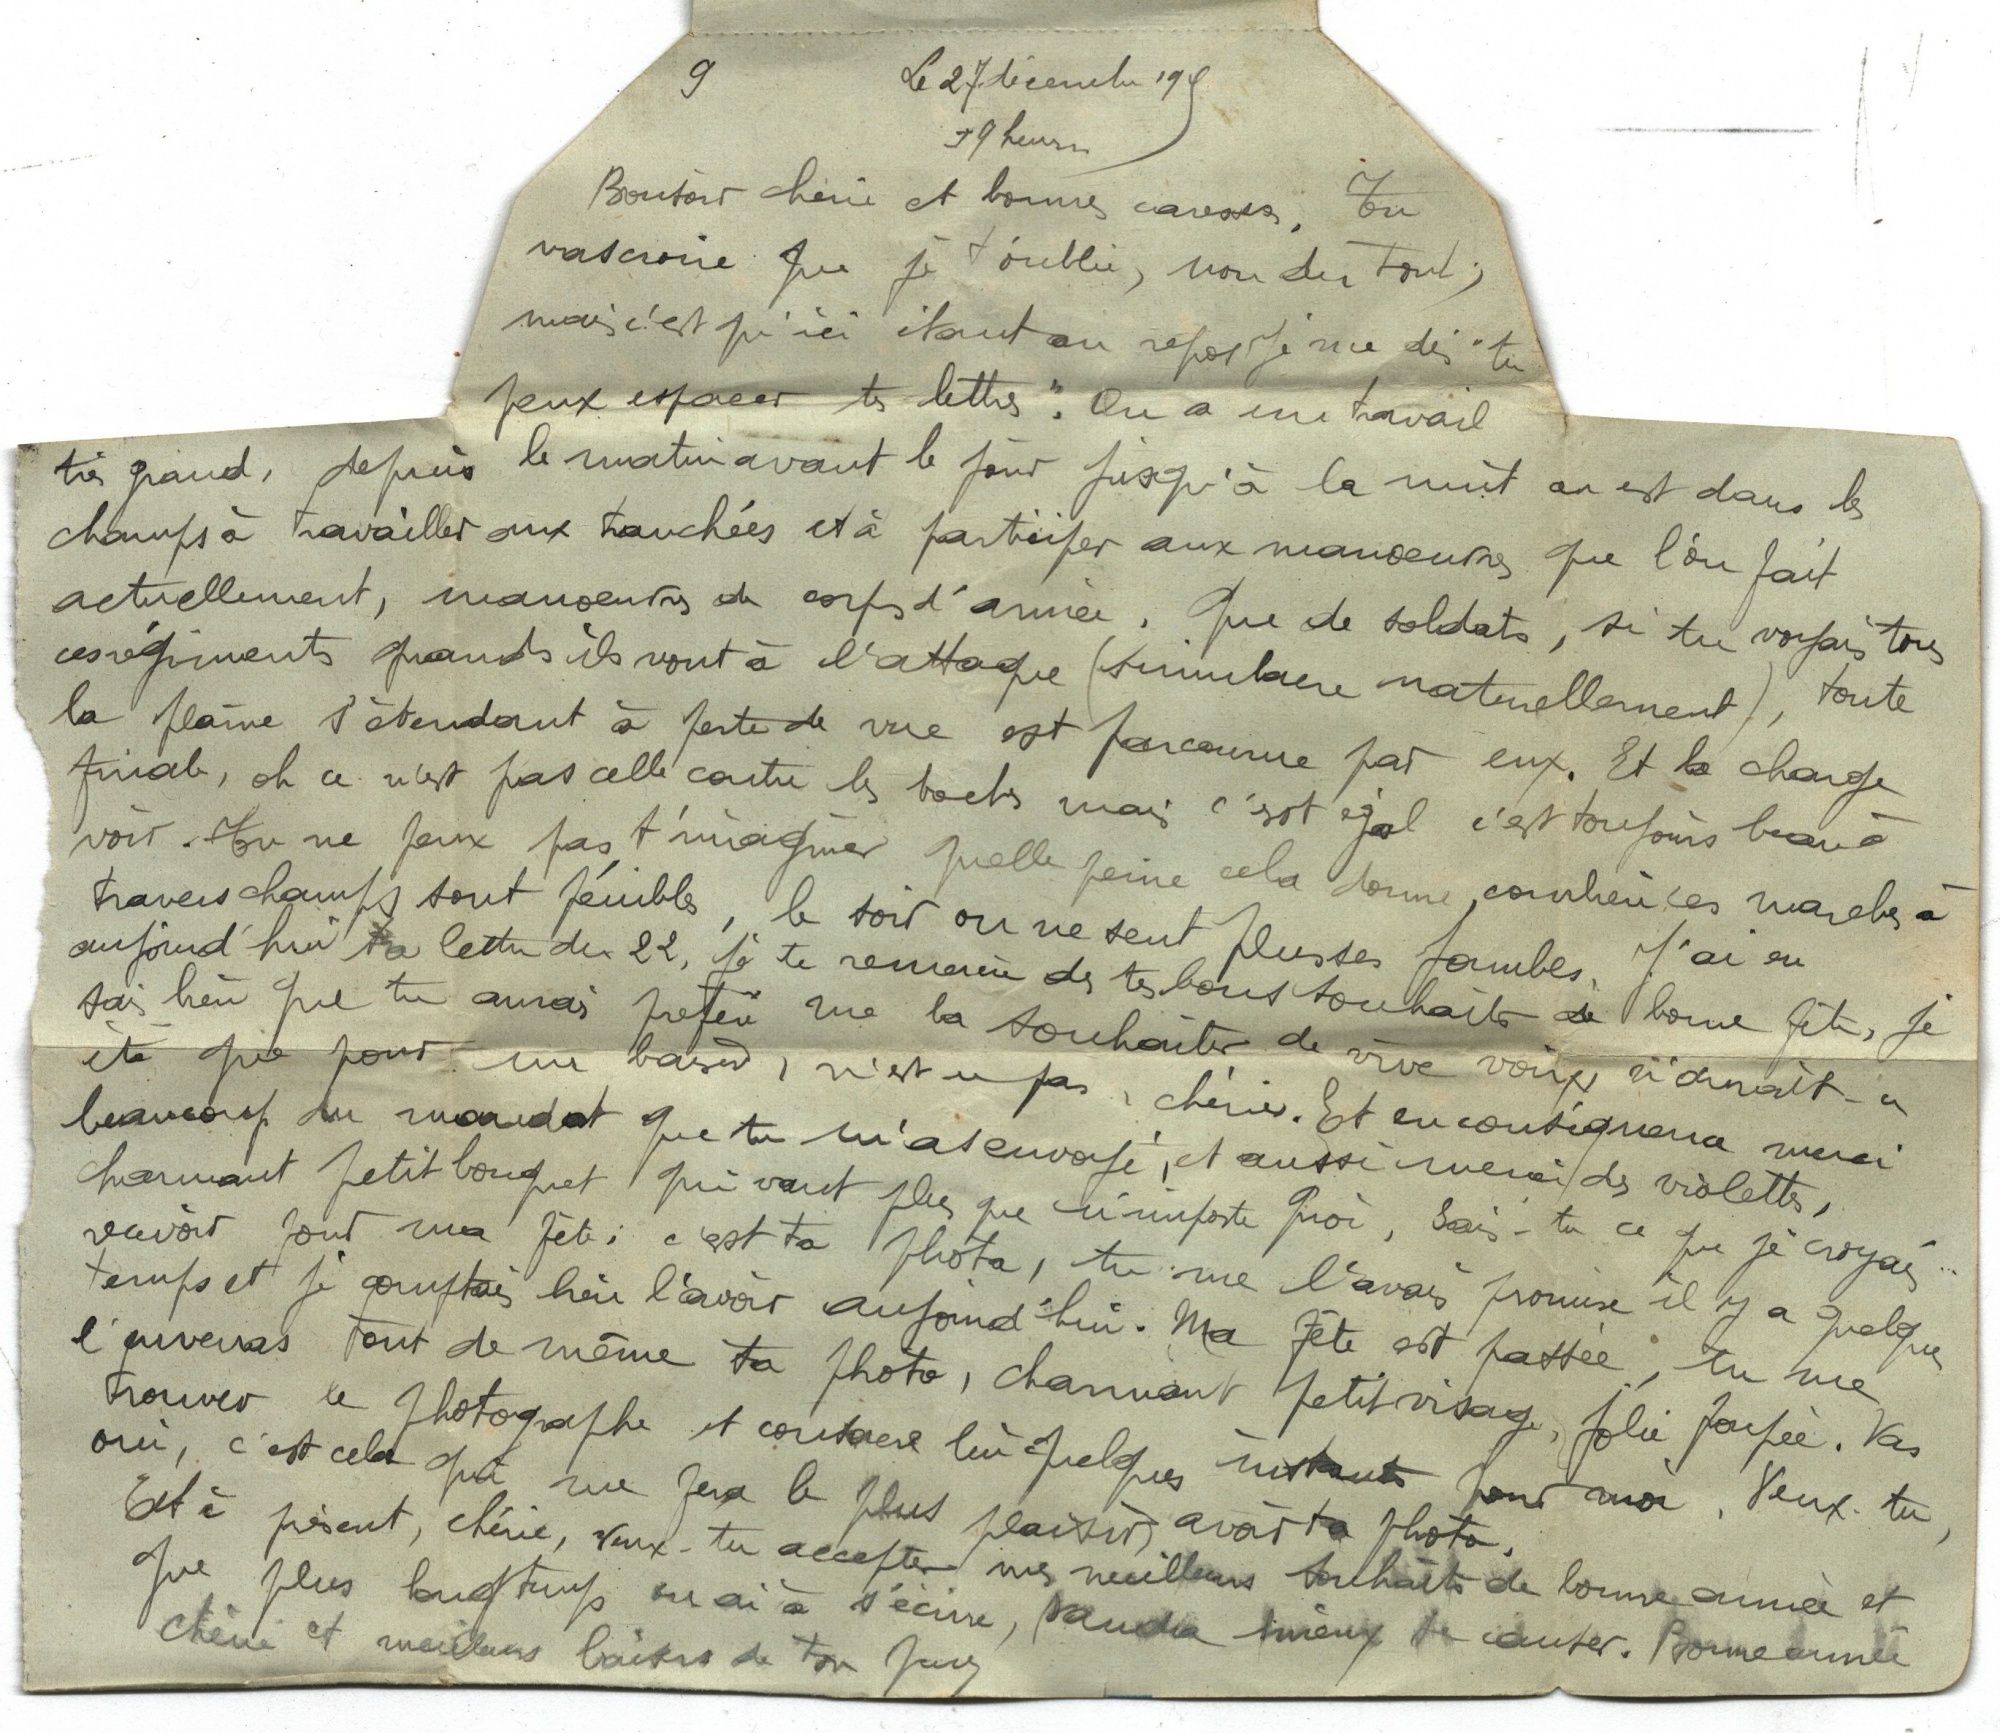 9 Le 27 décembre 191
19 heures
Bonsoir chérie et bonnes caresses. Tu
vas croire que je t'oublie, non du tout,
mais c'est qu'ici étant au repos je me dis "tu
peux espacer tes lettres". On a un travail
très grand, depuis le matin avant le jour jusqu'à la nuit on est dans les
champs à travailler aux tranchées et à participer aux manoeuvres que l'on fait
actuellement, manoeuvres de corps d'armée. Que de soldats, si tu voyais tous
ces régiments quands ils vont à l'attaque (simulacre naturellement), toute
la plaine s'étendant à perte de vue est parcourue par eux. Et la charge
finale, oh ce n'est pas celle contre les boches mais c'est égal c'est toujours beau à
voir. Tu ne peux pas t'imaginer quelle peine cela donne, combien ces marches à
travers champs sont pénibles, le soir on ne sent plus ses jambes. J'ai eu
aujourd'hui ta lettre du 22, je te remercie des tes bons souhaits de bonne fête, je
sais bien que tu aurais préféré me la souhaiter de vive voix, n'aurait-ce
été que pour un baiser, n'est-ce pas, chérie. Et en conséquence merci
beaucoup du mandat que tu m'as envoyé, et aussi merci des violettes,
charmant petit bouquet qui vaut plus que n'importe quoi. Sais-tu ce que je croyais
recevoir pour ma fête; c'est ta photo, tu me l'avais promise il y a quelques
temps et je comptais bien l'avoir aujourd'hui. Ma fête est passée, tu me
l'enverras tout de même ta photo, charmant petit visage, jolie poupée. Vas
trouver le photographe et consacre lui quelques instants pour moi. Veux-tu,
oui, c'est cela qui me fera le plus plaisir, avoir ta photo.
Et à présent, chérie, veux-tu accepter mes meilleurs souhaits de bonne année et
que plus longtemps on ai à s'écrire, vaudra mieux se causer. Bonne année
chérie et meilleurs baisers de ton